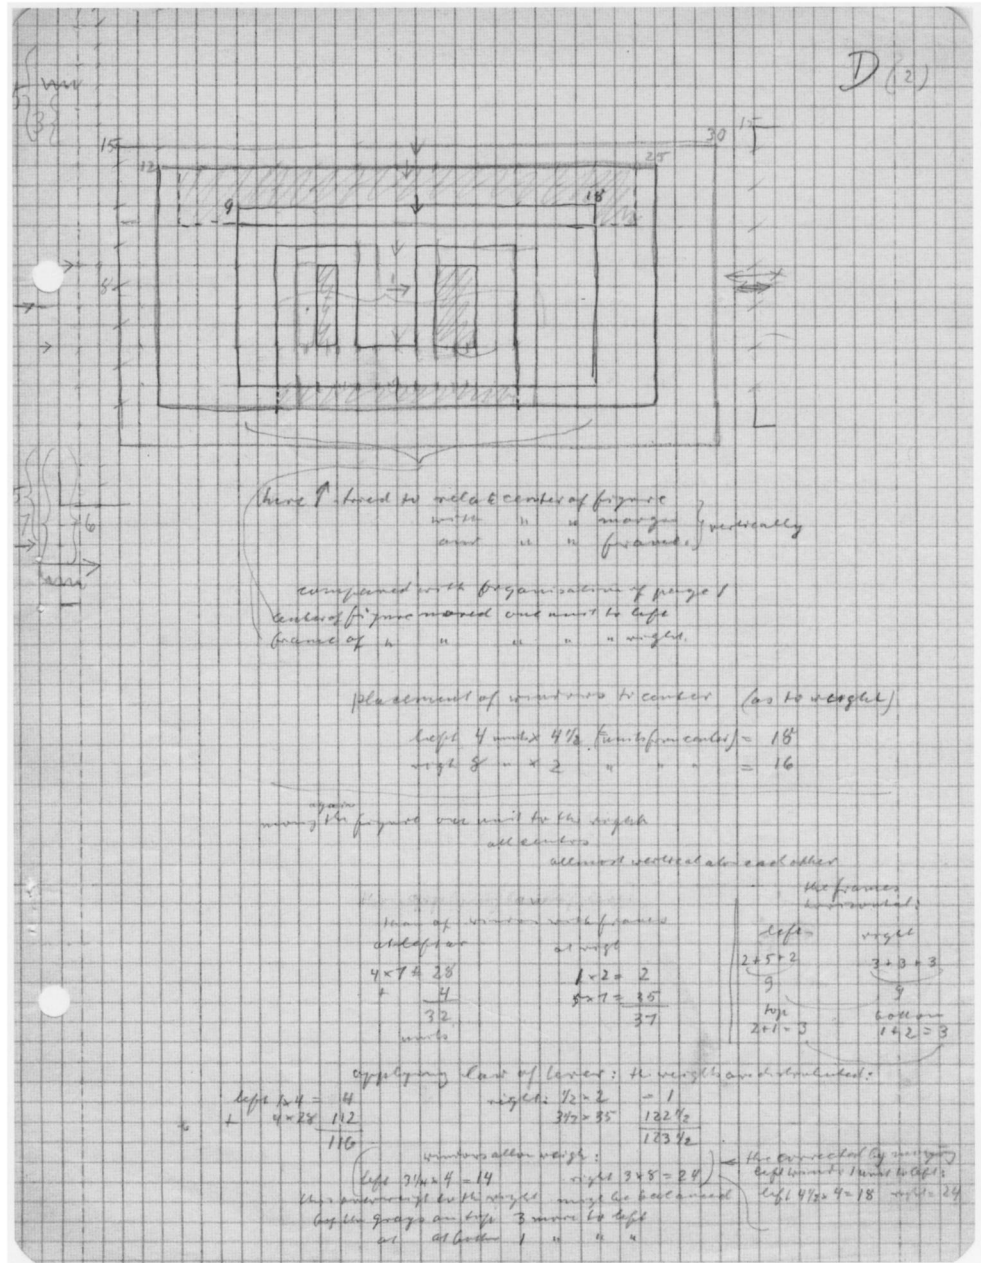 D (2)
3
15 30 15
12 25
9 18
8
7 6
here ↑ tried to relate center of figure
with " " margin
and " " frame. } vertically
compared with organisation of page 1
center of figure moved one unit to left
frame of " " " " right.
placement of windows to center (as to weight)
left 4 units x 4 1/2 (units from center) = 18
right 8 " x 2 " " " = 16
again
moving the figure one unit to the right
all centers
allmost vertical above each other
the frames
horizontal:
of window with frames
at left at right
4 x 7 = 28
+ 4
32
units
1 x 2 = 2
5 x 7 = 35
37
left right
2+5+2 3+3+3
9 9
top bottom
2+1=3 1+2=3
applying law of lever: the weights are distributed:
left 1x4 = 4
+ 4x28 112
116
right: 1/2 x 2 = 1
3 1/2 x 35 122 1/2
123 1/2
windows allone weigh:
left 3 1/2 x 4 = 14 right 3 x 8 = 24
the corrected by moving
left window 1 unit to left:
left 4 1/2 x 4 = 18 right = 24
this overweight to the right might be balanced
by the grays on top 3 more to left
at bottom 1 " " "